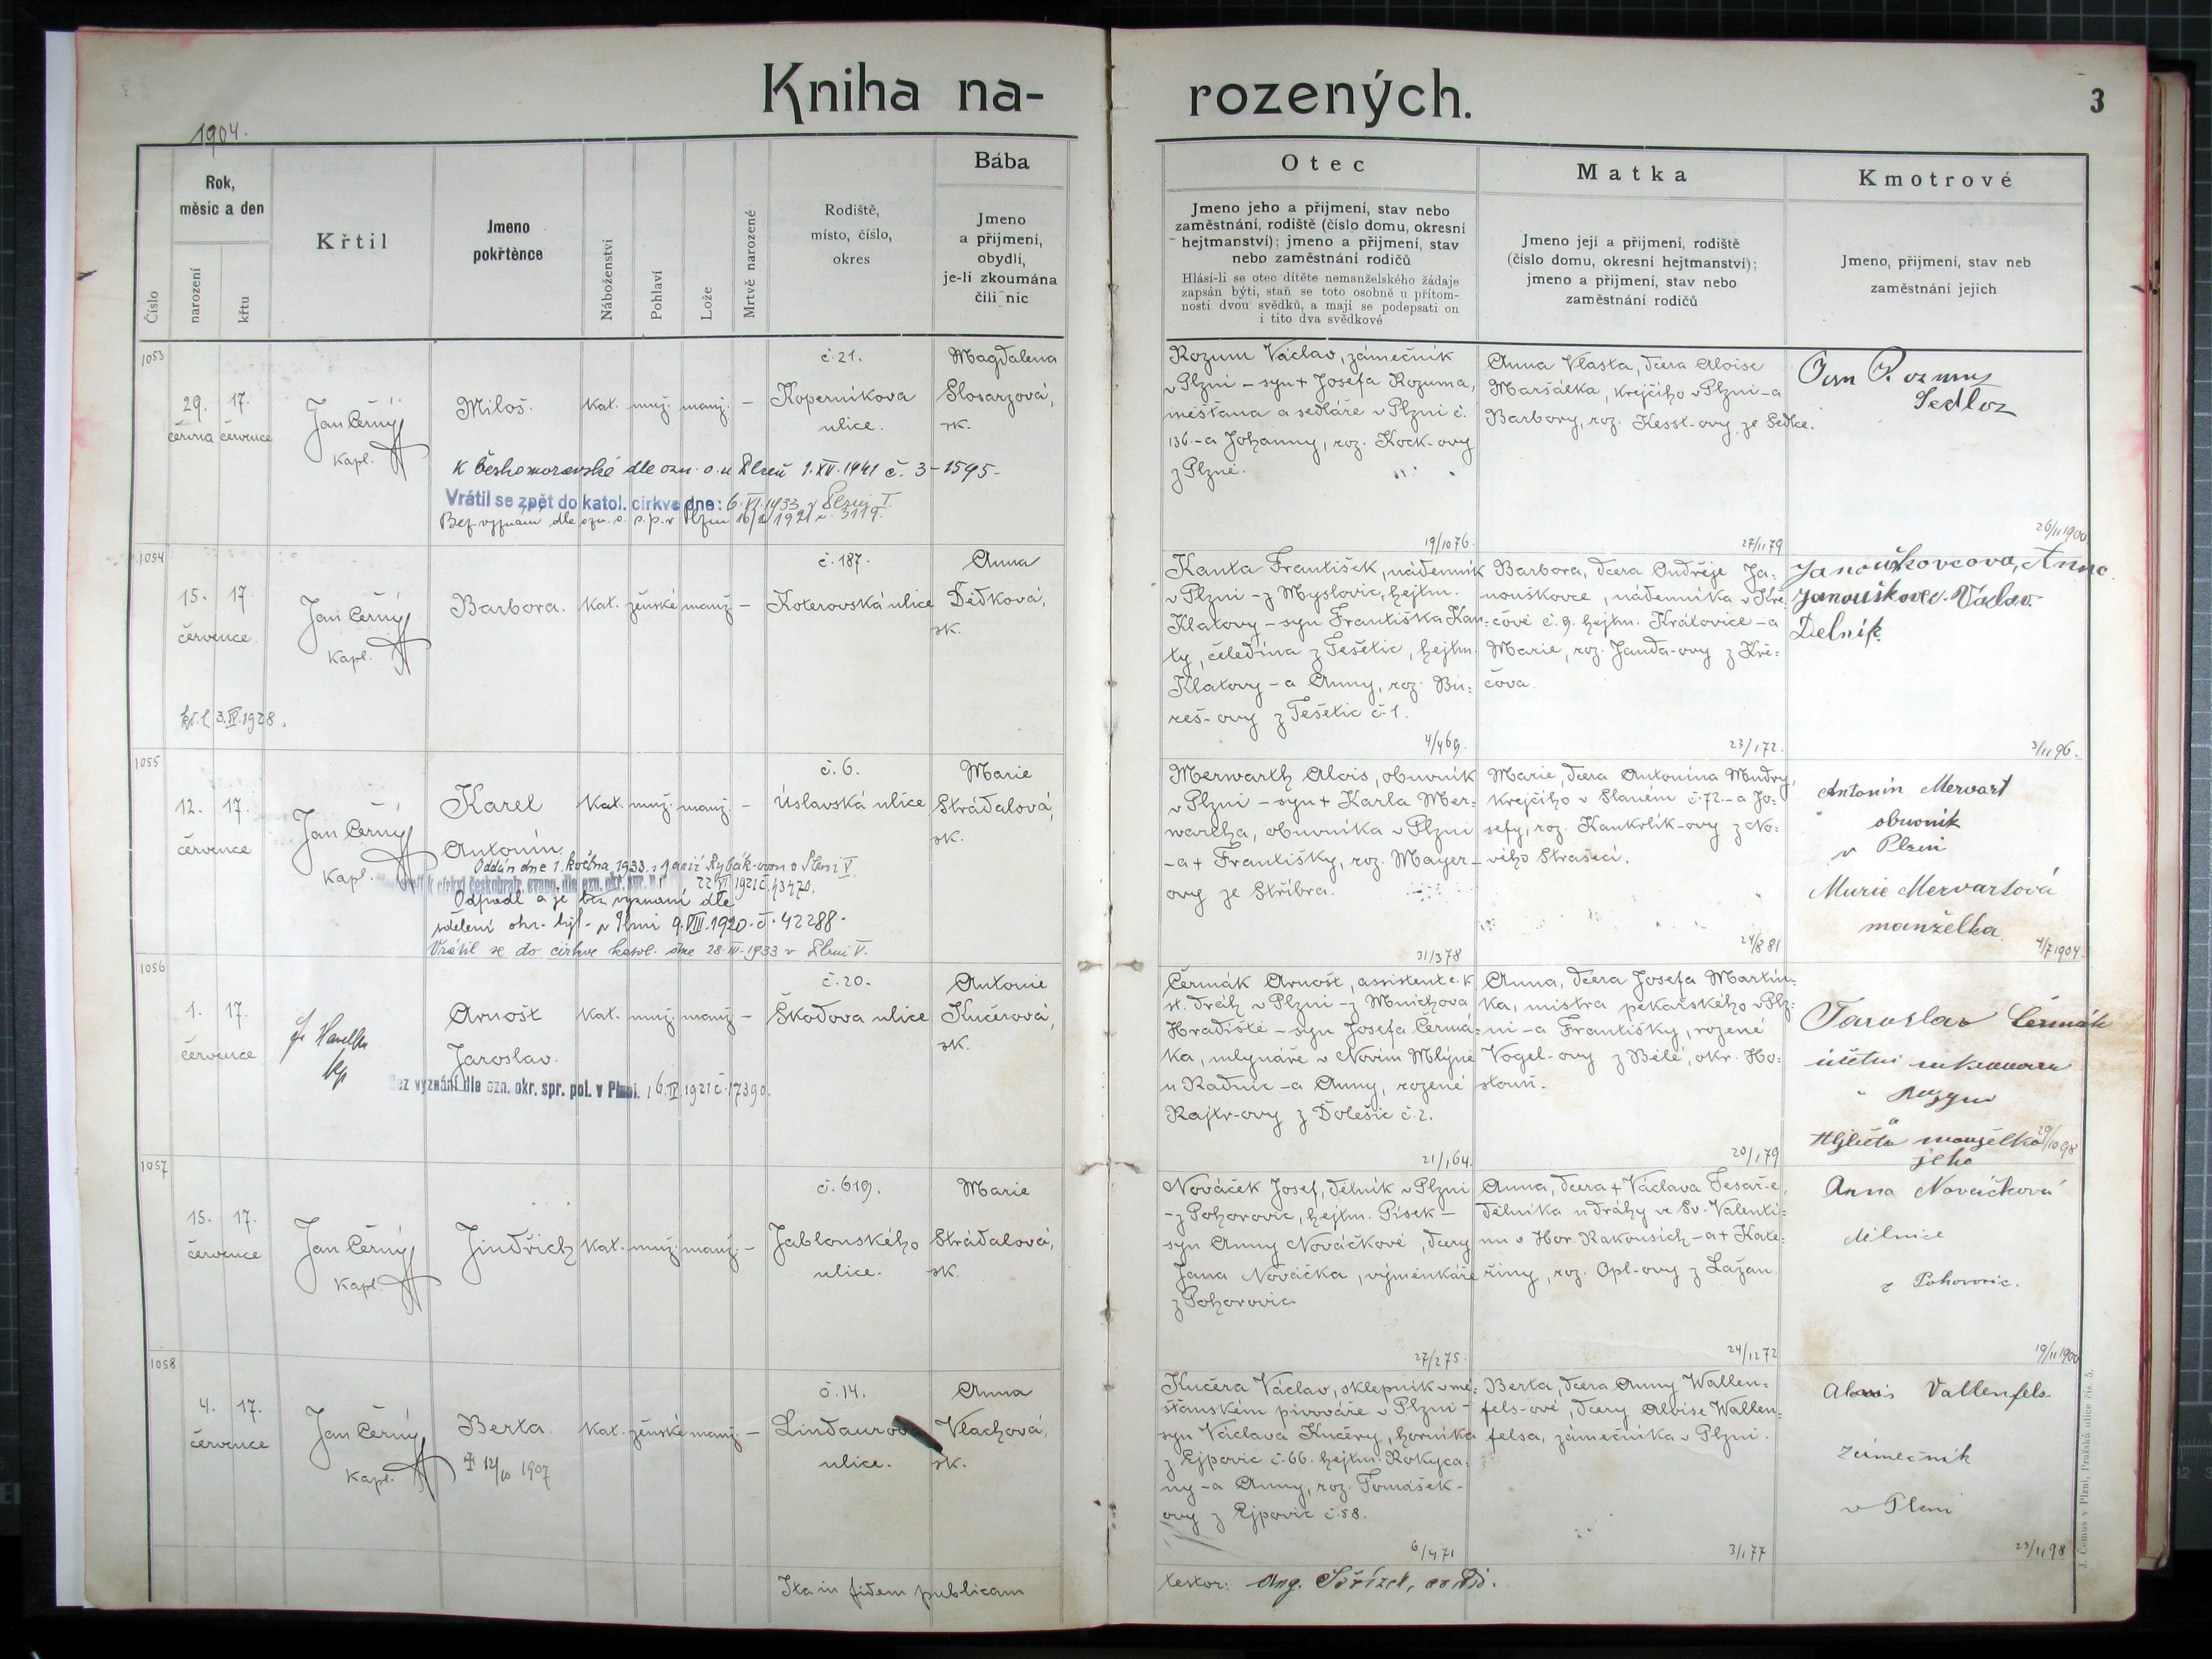 Kniha na-
rozených.
3
1904.
Číslo
Rok,
měsíc a den
narození
křtu
Křtil
Jmeno
pokřtěnce
Náboženství
Pohlaví
Lože
Mrtvě narozené
Rodiště,
místo, číslo,
okres
Bába
Jmeno
a přijmení,
obydlí,
je-li zkoumána
čili nic
Otec
Jmeno jeho a přijmení, stav nebo
zaměstnání, rodiště (číslo domu, okresní
hejtmanství); jmeno a přijmení, stav
nebo zaměstnání rodičů
Hlásí-li se otec dítěte nemanželského žádaje
zapsán býti, staň se toto osobně u přítom-
nosti dvou svědků, a mají se podepsati on
i tito dva svědkové
Matka
Jmeno její a přijmení, rodiště
(číslo domu, okresní hejtmanství);
jmeno a přijmení, stav nebo
zaměstnání rodičů
Kmotrové
Jmeno, přijmení, stav neb
zaměstnání jejich
1053
29. 17.
června července
Jan Černý
kapl.
Miloš.
kat. muž. manž. –
č. 21.
Koperníkova
ulice.
Magdalena
Slosarzová,
zk.
K českomoravské dle ozn. o. u Plzeň 1. XII. 1941 č. 3-1595-
Vrátil se zpět do katol. církve dne: 6. VI. 1933 v Plzni I.
Bez vyznání dle ozn. o. s. p. v Plzni 16/2 1921 č. 3119.
Rozum Václav, zámečník
v Plzni – syn + Josefa Rozuma,
měšťana a sedláře v Plzni č.
136. – a Johanny, roz. Kock-ovy
z Plzně.
19/10 76.
Anna Vlasta, dcera Aloise
Maršálka, krejčího v Plzni – a
Barbory, roz. Kessl-ovy ze Sedlce.
27/11 79
Jan Rozum
26/11 1900.
1054
15. 17.
července.
Jan Černý
kapl.
Barbora.
kat. ženské manž. –
č. 187.
Koterovská ulice
Anna
Dědková,
zk.
kř. l. 3. IV. 1928.
Kanta František, nádenník
v Plzni – z Myslovic, hejtm.
Klatovy – syn Františka Kan-
ty, čeledína z Tešetic, hejtm.
Klatovy – a Anny, roz. Bu-
reš-ovy z Tešetic č. 1.
4/4 69.
Barbora, dcera Ondřeje Ja-
nouškovce, nádenníka v Kře-
čově č. 9. hejtm. Královice – a
Marie, roz. Janda-ovy z Kře-
čova.
23/1 72.
Janouškovcova, Anna
Janouškovec Václav
Dělník.
3/11 96.
1055
12. 17.
července
Jan Černý
kapl.
Karel
Antonín.
kat. muž. manž. –
č. 6.
Úslavská ulice
Marie
Strádalová,
zk.
Oddán dne 1. května 1933 s Marií Rybák-ovou v Plzni V.
k církvi českobratr. evang. dle ozn. okr. spr. 22 VI 1921 č. 43470.
Odpadl a je bez vyznání dle
sdělení okr. hejt. v Plzni 9. VIII. 1920. č. 42288.
Vrátil se do církve katol. dne 28. III. 1933 v Plzni V.
Merwarth Alois, obuvník
v Plzni – syn + Karla Mer-
wartha, obuvníka v Plzni
– a + Františky, roz. Mayer-
ovy ze Stříbra.
31/3 78
Marie, dcera Antonína Mudry,
krejčího v Slaném č. 72. – a Jo-
sefy, roz. Kaukolík-ovy z No-
vého Strašecí.
24/8 81
Antonín Mervart
obuvník
v Plzni
Marie Mervartová
manželka
4/7 1904.
1056
1. 17.
července
Fr. Havelka
Arnošt
Jaroslav.
kat. muž. manž. –
č. 20.
Škodova ulice
Antonie
Kučerová,
zk.
Bez vyznání dle ozn. okr. spr. pol. v Plzni. 16. IV. 1921 č. 17390.
Čermák Arnošt, assistent c. k.
st. dráh v Plzni – z Mnichova
Hradiště – syn Josefa Čermá-
ka, mlynáře v Novém Mlýně
u Radnic – a Anny, rozené
Rajtr-ovy z Dolešic č. 2.
21/1 64.
Anna, dcera Josefa Martín-
ka, mistra pekařského v Plz-
ni – a Františky, rozené
Vogel-ovy z Bělé, okr. Ho-
stouň.
20/1 79
Jaroslav Čermák
účetní
a
manželka
jeho
29/10 98
1057
15. 17.
července
Jan Černý
kapl.
Jindřich
kat. muž. manž. –
č. 619.
Jablonského
ulice.
Marie
Strádalová,
zk.
Nováček Josef, dělník v Plzni
– z Pohorovic, hejtm. Písek –
syn Anny Nováčkové, dcery
Jana Nováčka, výměnkáře
z Pohorovic.
27/2 75.
Anna, dcera + Václava Tesař-e,
dělníka u dráhy ve Sv. Valenti-
nu v Hor. Rakousích – a + Kate-
řiny, roz. Opl-ovy z Lažan.
24/12 72
Anna Nováčková
dělnice
z Pohorovic.
19/11 1900
1058
4. 17.
července
Jan Černý
kapl.
Berta.
✝ 12/10 1907
kat. ženské manž. –
č. 14.
Lindaurova
ulice.
Anna
Vlachová,
zk.
Kučera Václav, sklepník v mě-
šťanském pivováře v Plzni –
syn Václava Kučery, horníka
z Ejpovic č. 66. hejtm. Rokyca-
ny – a Anny, roz. Tomášek-
ovy z Ejpovic č. 58.
6/4 71
Berta, dcera Anny Wallen-
fels-ové, dcery Aloise Wallen-
felsa, zámečníka v Plzni.
3/1 77
Alouis Vallenfels
zámečník
v Plzni
23/11 98
Ita in fidem publicam
testor:
J. Čomus v Plzni, Pražská ulice čís. 5.